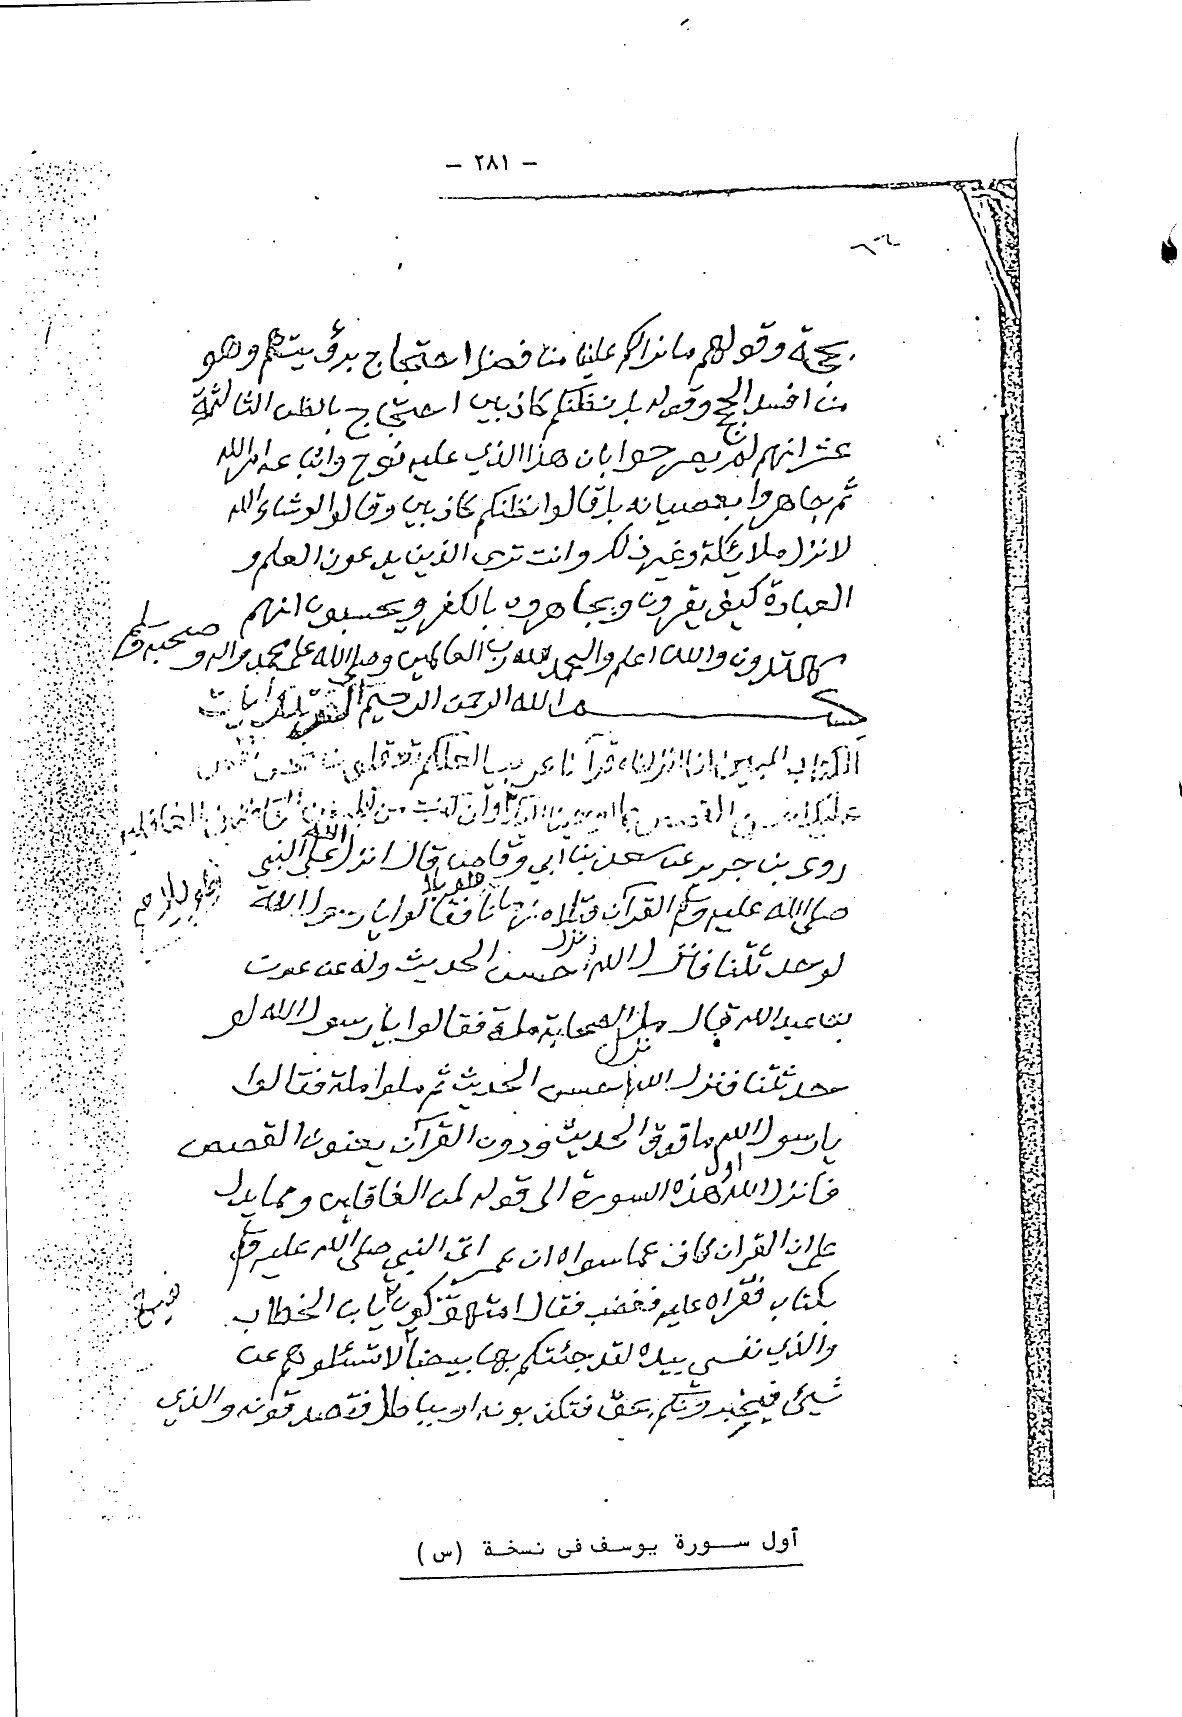 - ٢٨١ -
بحجة وقولهم ما نراكم علينا من فضل احتجاج برؤيتهم وهو
من افسد الحجج وقوله بل نظنكم كاذبين احتجاج بالظن الثالثة
عشر انهم لم جوابا بان هذا الذي عليه نوح واتباعه امر الله
ثم جاهروا بعصيانه بل قالوا نظنكم كاذبين وقالوا لو شاء الله
لانزل ملائكة وغير ذلك وانت ترى الذين يدعون العلم و
العبادة كيف يقرون ويجاهرون بالكفر ويحسبون انهم
مهتدون والله اعلم والحمد لله رب العالمين وصلى الله على محمد واله وصحبه وسلم
بسم الله الرحمن الرحيم الر تلك آيات
الكتاب المبين انا انزلناه قرآنا عربيا لعلكم تعقلون نحن نقص
عليك احسن القصص بما اوحينا اليك وان كنت من قبله لمن الغافلين
روى بن جرير عن سعد بن أبي وقاص قال انزل الله على النبي
صلى الله عليه وسلم القرآن فتلاه زمانا فقالوا يا رسول الله
لو حدثتنا فانزل الله نزل احسن الحديث وله عن عون
بن عبد الله قال مل الصحابة ملة فقالوا يا رسول الله لو
حدثتنا فنزل الله نزل احسن الحديث ثم ملوا ملة فقالوا
يا رسول الله ما فوق الحديث ودون القرآن يعنون القصص
فأنزل الله اول هذه السورة الى قوله لمن الغافلين ومما يدل
على ان القران كاف عما سواه ان عمر اتى النبي صلى الله عليه وسلم
بكتاب فقرأه عليه فغضب فقال امتهوكون يا بن الخطاب
والذي نفسي بيده لقد جئتكم بها بيضاء لا تسئلوهم عن
شيئ فيخبرونكم بحق فتكذبونه او بباطل فتصدقونه والذي
أول سورة يوسف فى نسخة (س)